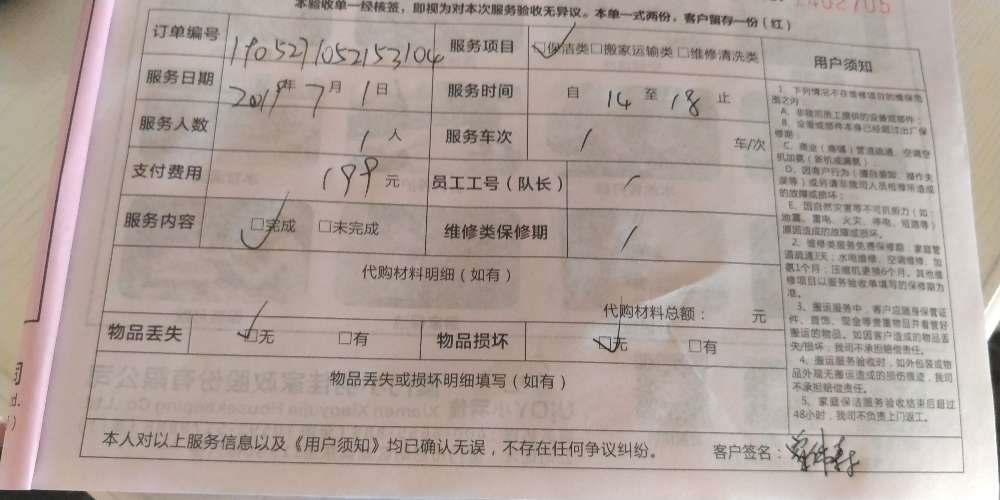 本验收单一经核签，即视为对本次服务验收无异议。本单一式两份，客户留存一份（红）
订单编号 1905271052153104 服务项目 ☑保洁类□搬家运输类□维修清洗类
服务日期 2019年7月1日 服务时间 自 14 至 18 止
服务人数 1 人 服务车次 / 车/次
支付费用 199 元 员工工号（队长） /
服务内容 ☑完成 □未完成 维修类保修期 /
代购材料明细（如有）
代购材料总额： 元
物品丢失 ☑无 □有 物品损坏 ☑无 □有
物品丢失或损坏明细填写（如有）
本人对以上服务信息以及《用户须知》均已确认无误，不存在任何争议纠纷。 客户签名：
用户须知
1、下列情况不在维修项目的维保范
围之内
A、非我司员工提供的设备或部件；
B、设备或部件本身已经超过出厂保
修期；
C、商业（商铺）管道疏通、空调空
机加氨（新机或漏氨）
D、因客户行为（擅自拆卸、操作失
误等）或另请非我司人员检修所造成
的故障或损坏；
E、因自然灾害等不可抗拒力（如：
地震、雷电、火灾、停电、短路等）
原因造成的故障或损坏。
2、维修类服务免费保修期：家庭管
道疏通3天；水电维修、空调维修、加
氨1个月；压缩机更换6个月。其他维
修项目以服务验收单填写的保修期为
准。
3、搬运服务中，客户应随身保管证
件、首饰、现金等贵重物品并看管好
搬运的物品。如因客户造成的物品丢
失/损坏，我司不承担赔偿责任。
4、搬运服务验收时，如外包装或物
品外观无搬运造成的损伤痕迹，我司
不承担赔偿责任。
5、家庭保洁服务验收结束后超过
48小时，我司不负责上门返工。